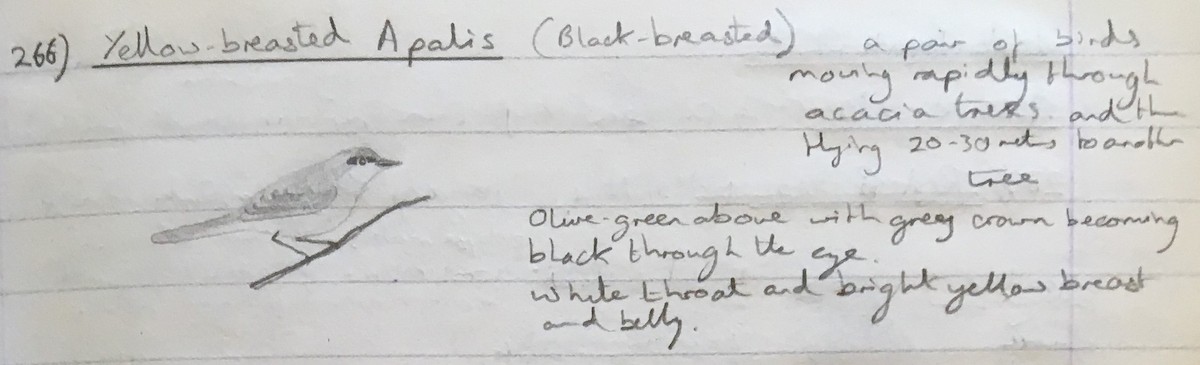 266) Yellow-breasted Apalis (Black-breasted) a pair of birds
moving rapidly through
acacia trees and th
flying 20-30 metres to another
tree
Olive-green above with grey crown becoming
black through the eye.
White throat and bright yellow breast
and belly.